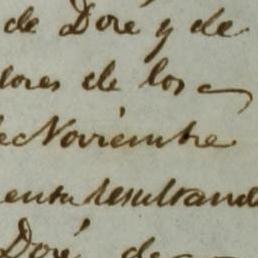 de Doré y de
dores de los
de Noviembre
enta resultand
Doré de